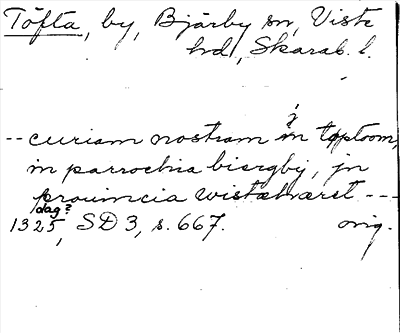 Töfta, by, Bjärby sn, Viste
hd, Skarab. l.
-- curiam nostram in toptoom,
in parrochia biergby, jn
prouincia wistæhæret ---
dag?
1325, SD 3, s. 667. orig.